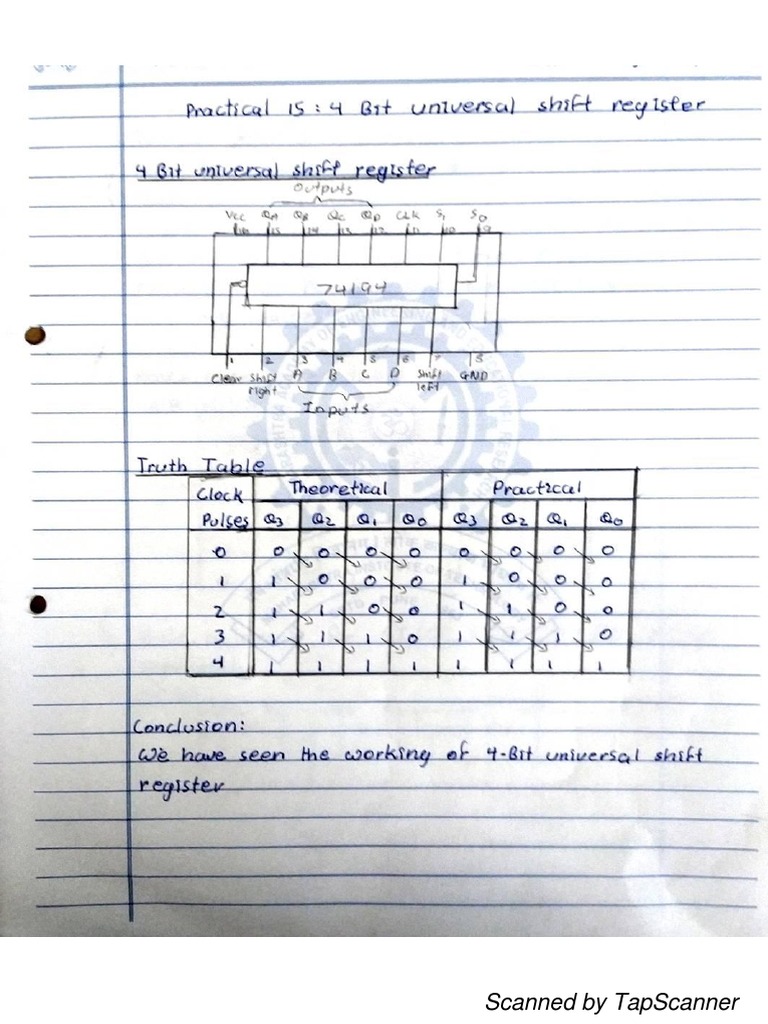 Practical 15 : 4 Bit universal shift register
4 Bit universal shift register
Outputs
Vcc QA QB QC QD CLK S1 S0
16 15 14 13 12 11 10 9
74194
1 2 3 4 5 6 7 8
Clear Shift right A B C D Shift left GND
Inputs
Truth Table
Clock Pulses Theoretical Practical
Q3 Q2 Q1 Q0 Q3 Q2 Q1 Q0
0 0 0 0 0 0 0 0 0
1 1 0 0 0 1 0 0 0
2 1 1 0 0 1 1 0 0
3 1 1 1 0 1 1 1 0
4 1 1 1 1 1 1 1 1
Conclusion:
We have seen the working of 4-Bit universal shift
register
Scanned by TapScanner